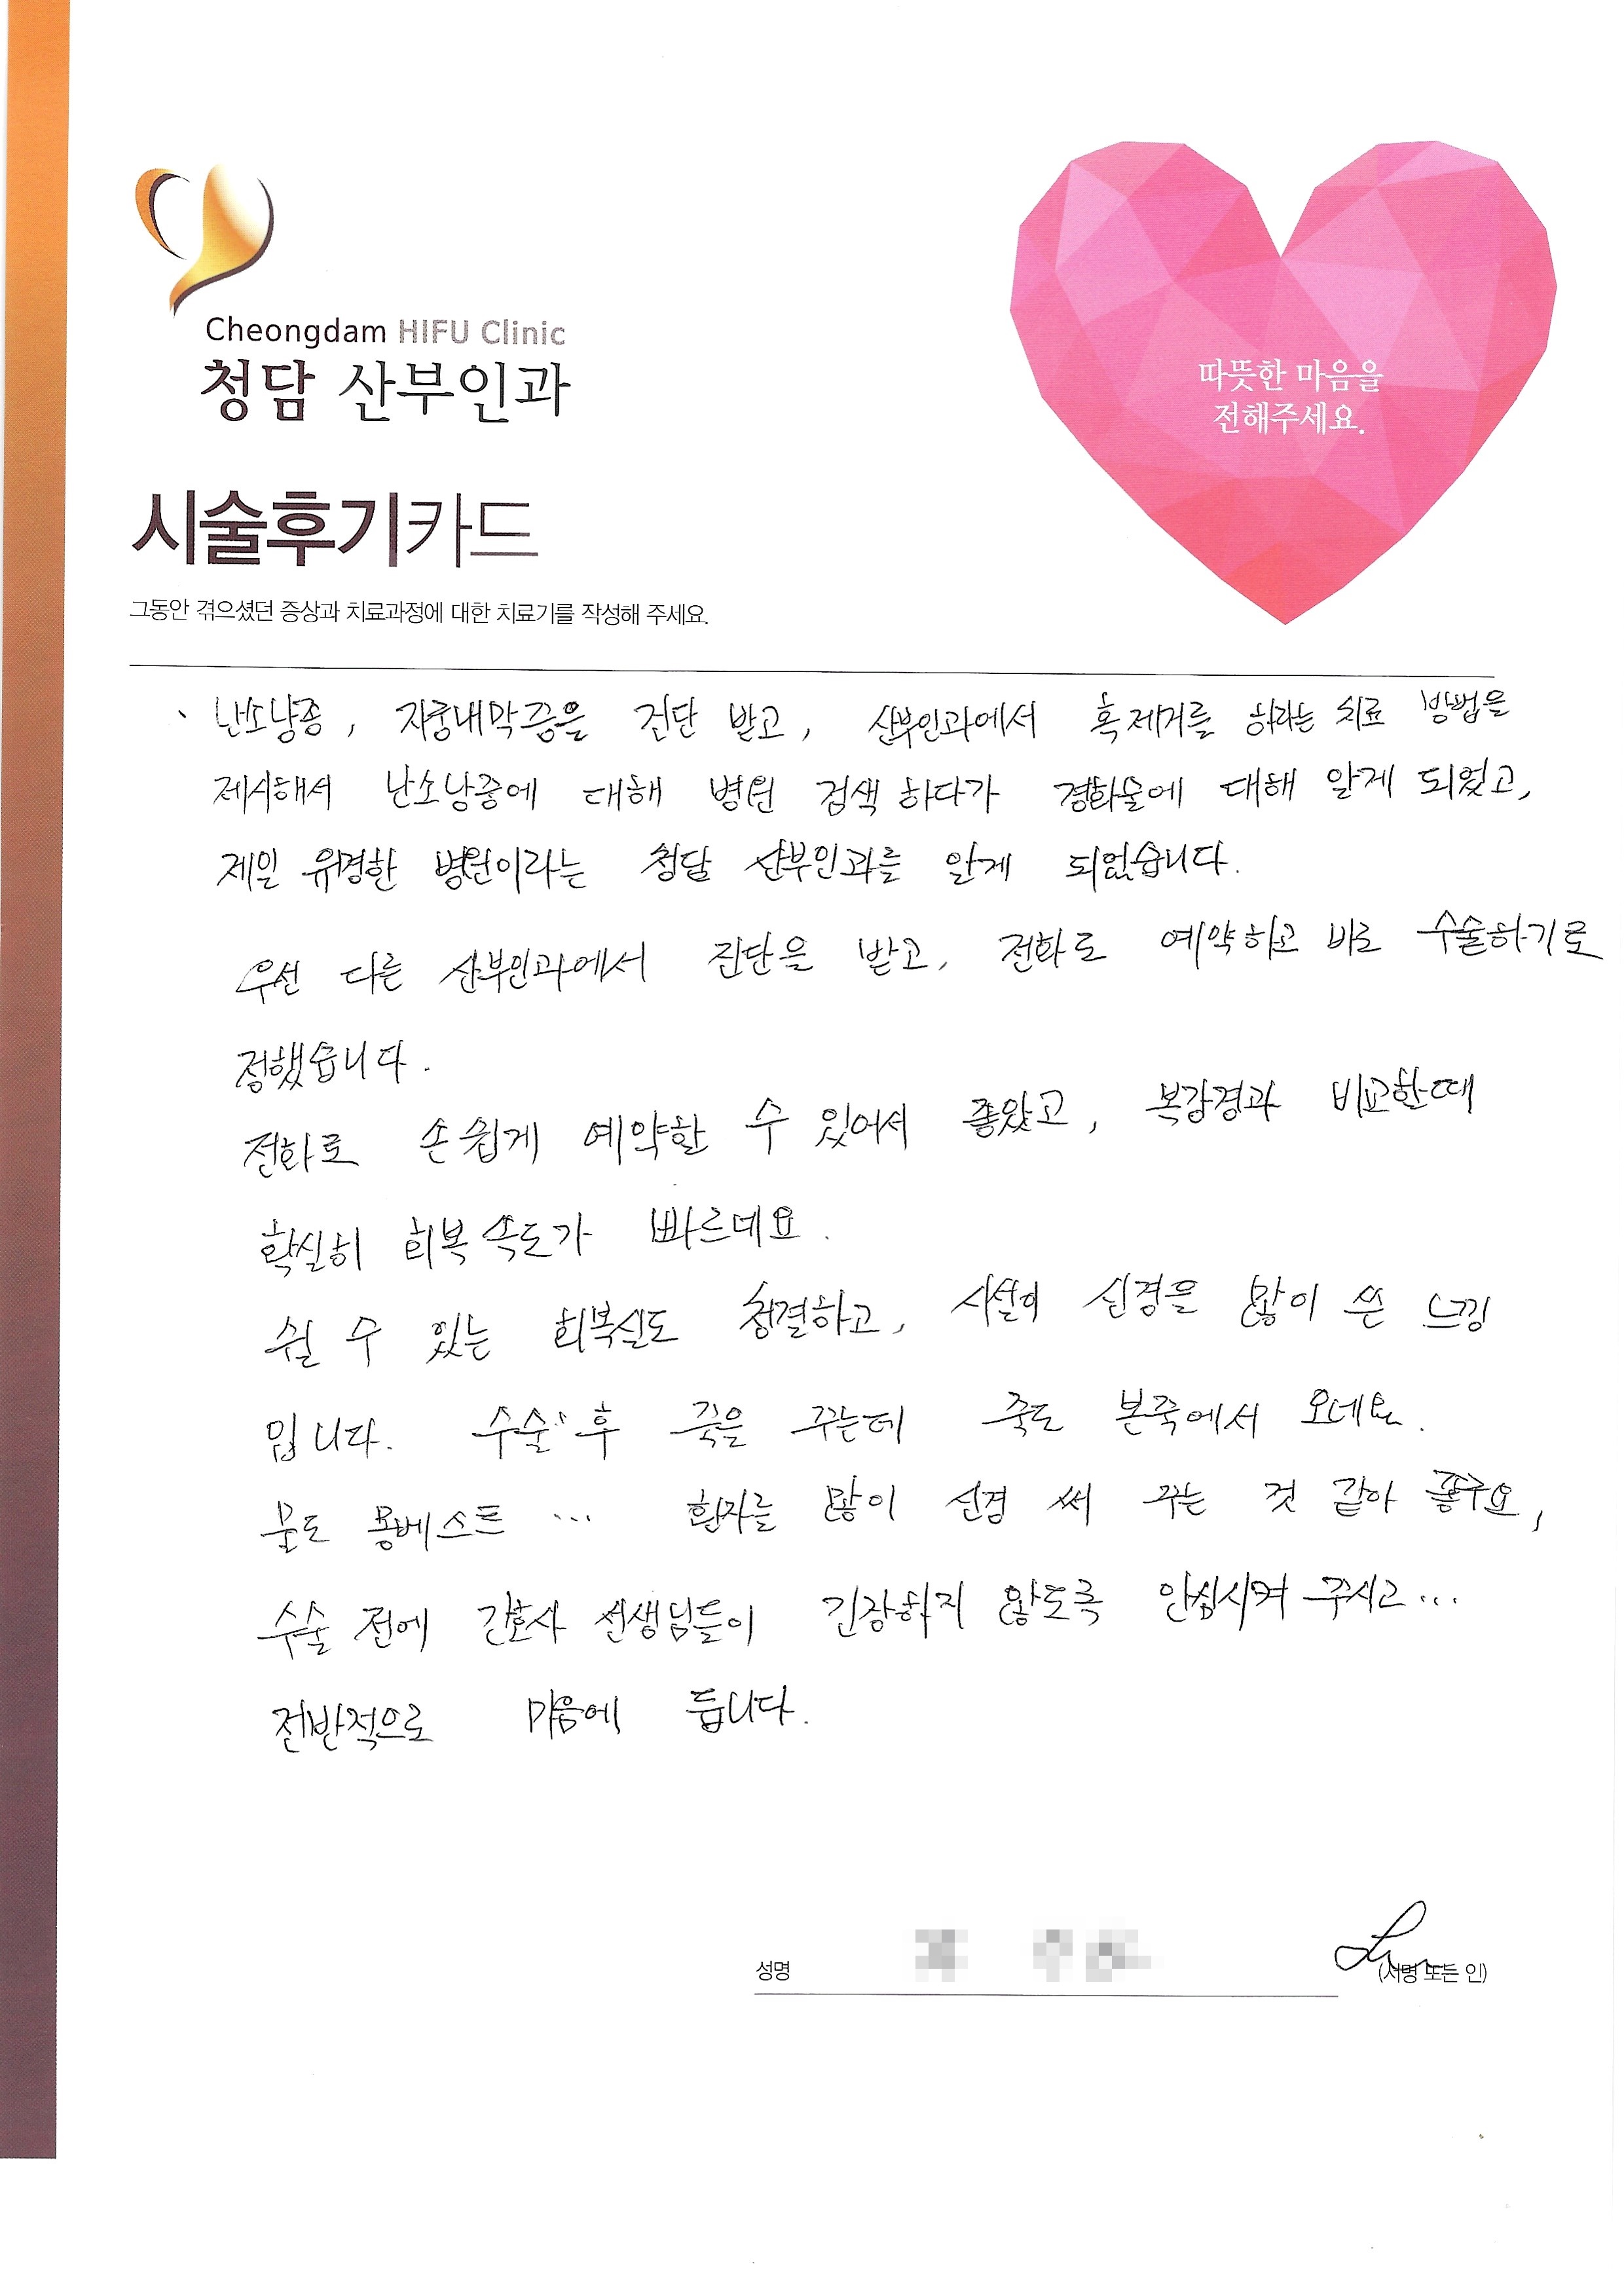 Cheongdam HIFU Clinic
청담 산부인과
따뜻한 마음을
전해주세요.
시술후기카드
그동안 겪으셨던 증상과 치료과정에 대한 치료기를 작성해 주세요.
난소낭종, 자궁내막증을 진단 받고, 산부인과에서 혹제거를 하라는 치료 방법을
제시해서 난소낭종에 대해 병원 검색하다가 경화술에 대해 알게 되었고,
제일 유경한 병원이라는 청담 산부인과를 알게 되었습니다.
우선 다른 산부인과에서 진단을 받고, 전화로 예약하고 바로 수술하기로
정했습니다.
전화로 손쉽게 예약할 수 있어서 좋았고, 복강경과 비교한때
확실히 회복속도가 빠르네요.
쉴 수 있는 회복실도 청결하고, 시설이 신경을 많이 쓴 느낌
입니다. 수술 후 죽을 주는데 죽도 본죽에서 오네요.
물도 몽베스트 ... 환자를 많이 신경 써 주는 것 같아 좋구요,
수술 전에 간호사 선생님들이 긴장하지 않도록 안심시켜 주시고...
전반적으로 마음에 듭니다.
성명 (서명 또는 인)